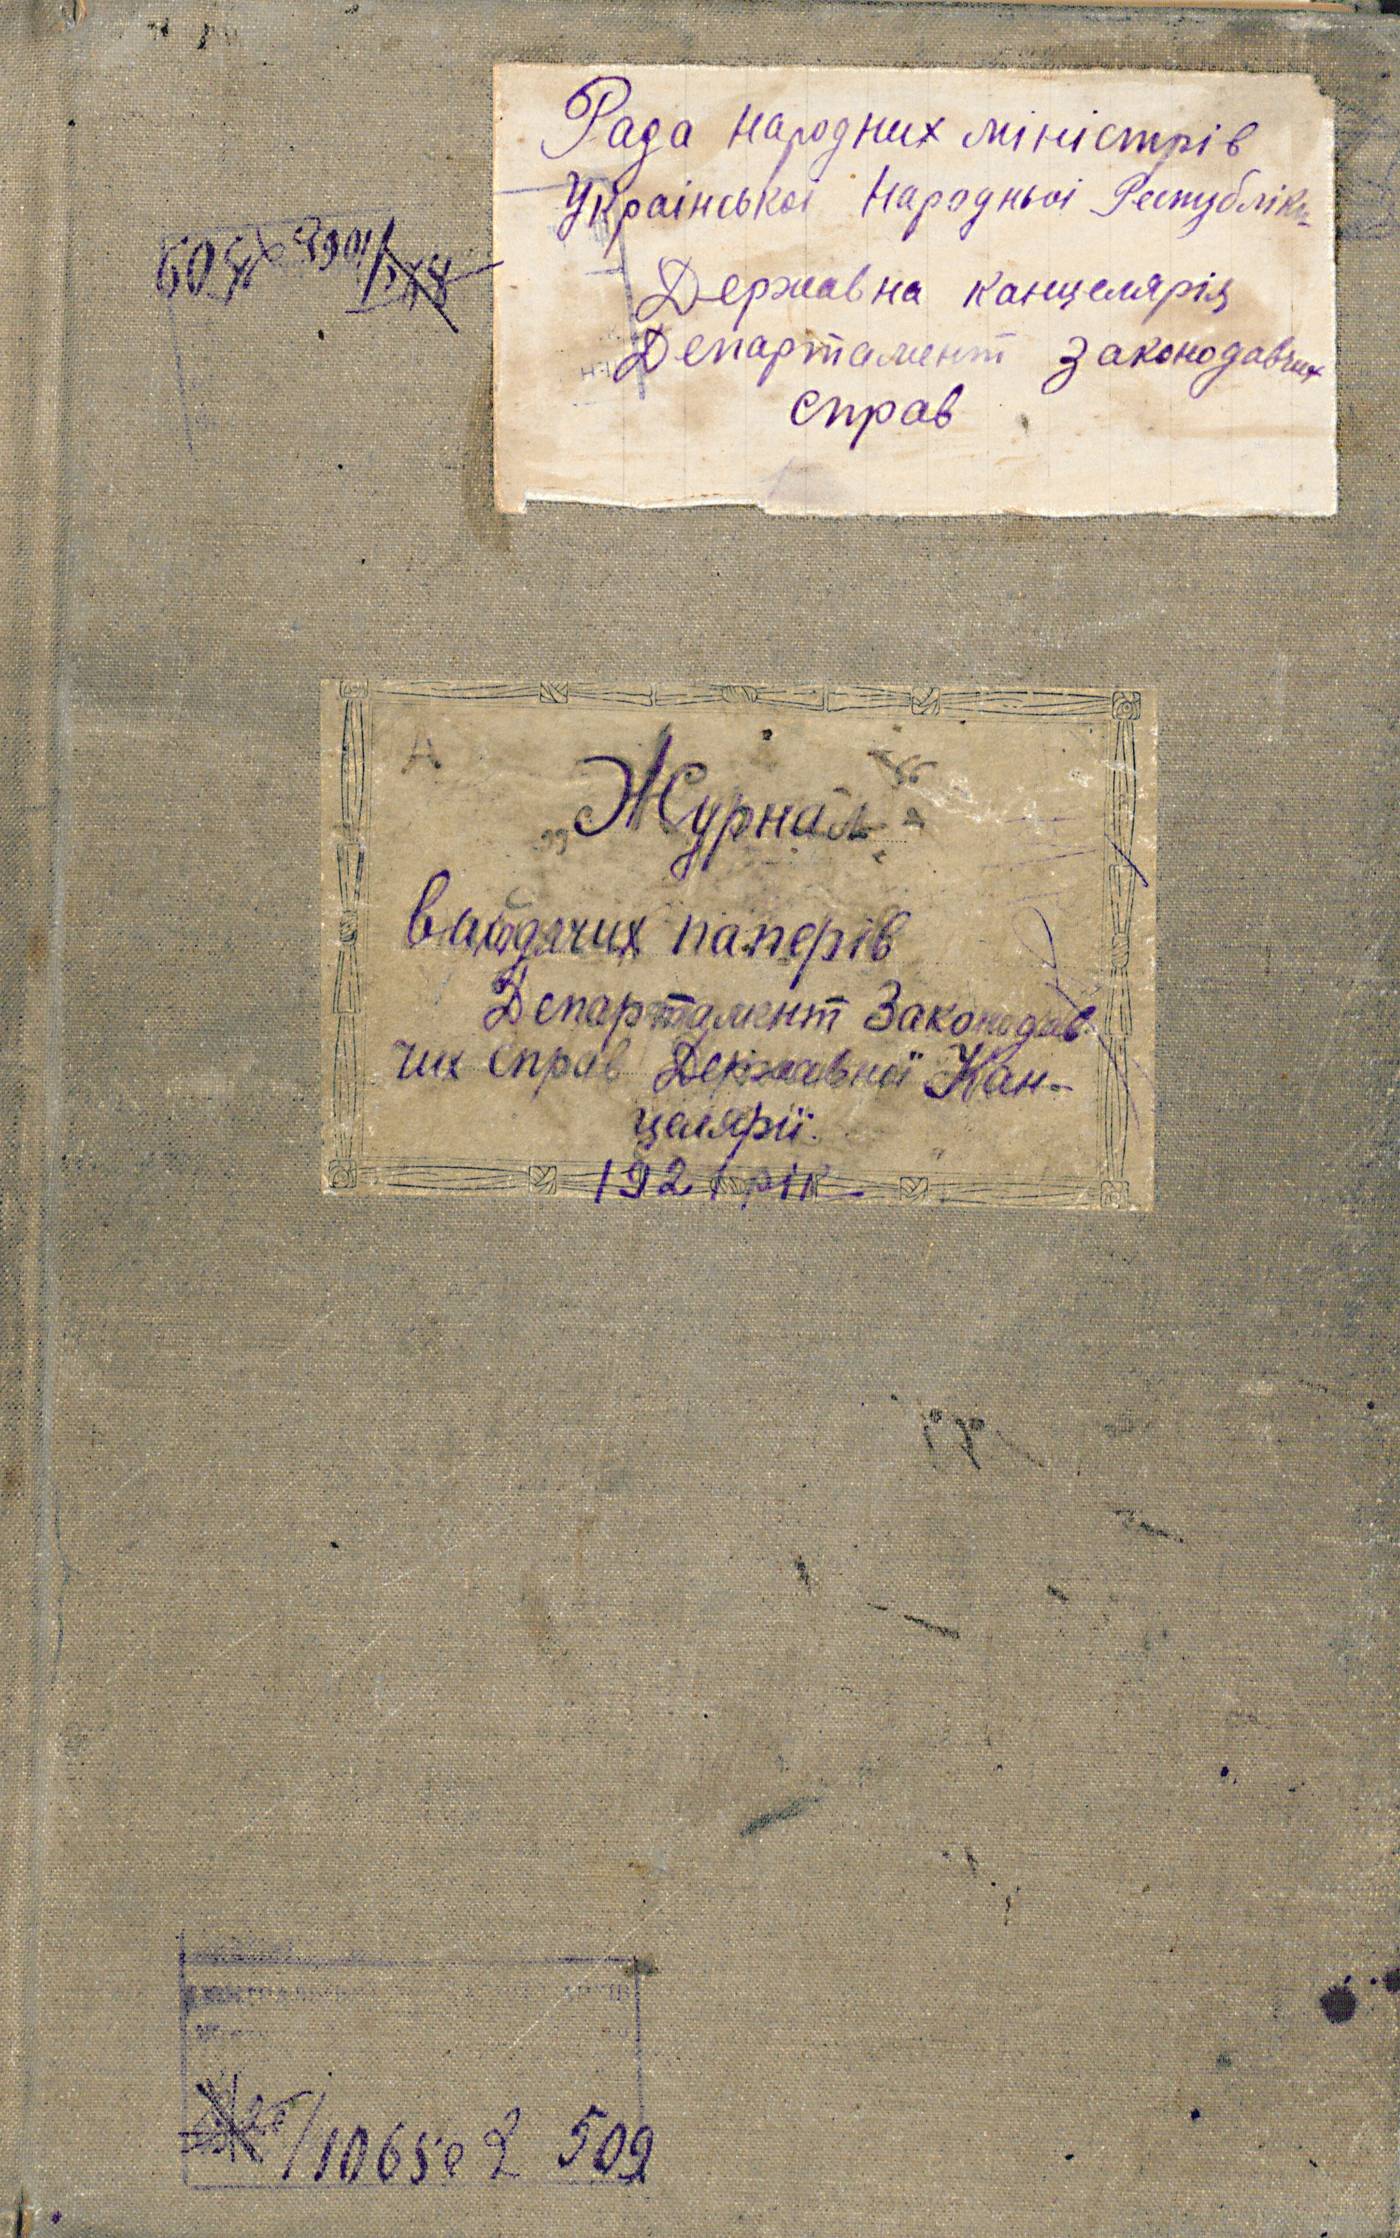 Рада народних міністрів
Української Народньої Республіки
Державна канцелярія
Департамент Законодавчих
справ
Журнал
папері́в
Департамент Законодав-
чих справ Державної Кан-
целярії.
1921 рік
/1065 2 509